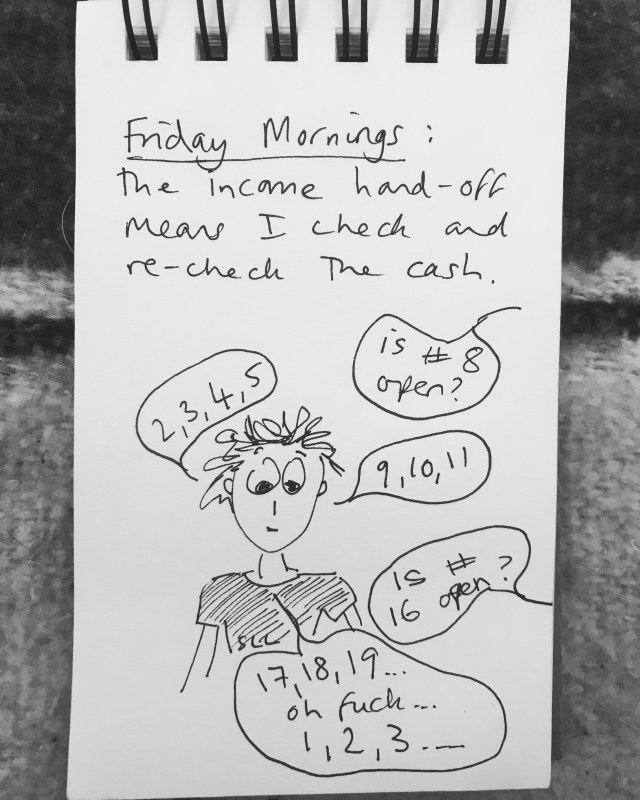 Friday Mornings:
The income hand-off
means I check and
re-check the cash.
2,3,4,5
is #8
open?
9,10,11
is #
16 open?
SLL
17,18,19...
oh fuck...
1,2,3...